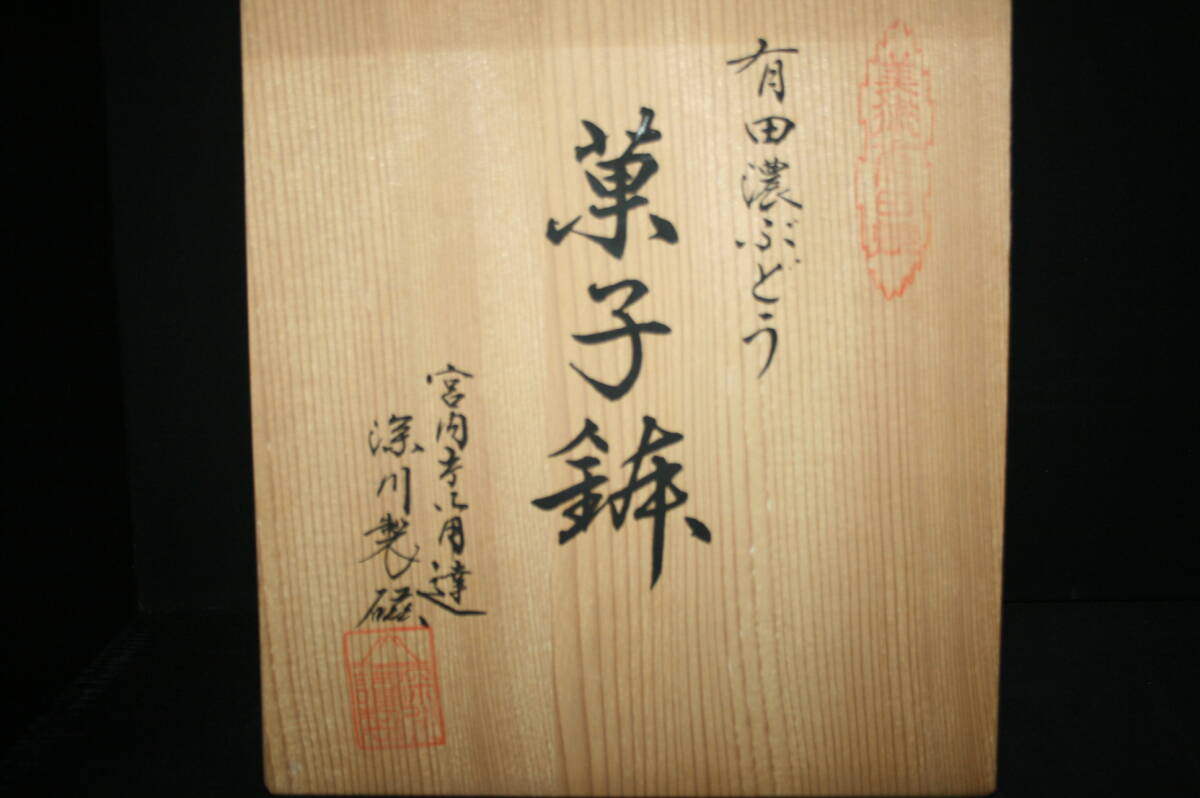 有田濃ぶどう
菓子鉢
宮内庁御用達
深川製磁